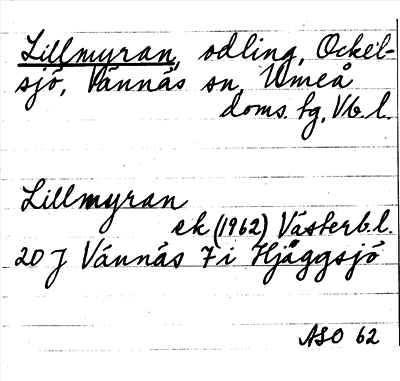 Lillmyran, odling, Ockel-
sjö, Vännäs sn, Umeå
doms. fg, Vb. l.
Lillmyran
ek (1962) Västerb. l.
20 J Vännäs 7 i Hjåggsjö
ASO 62